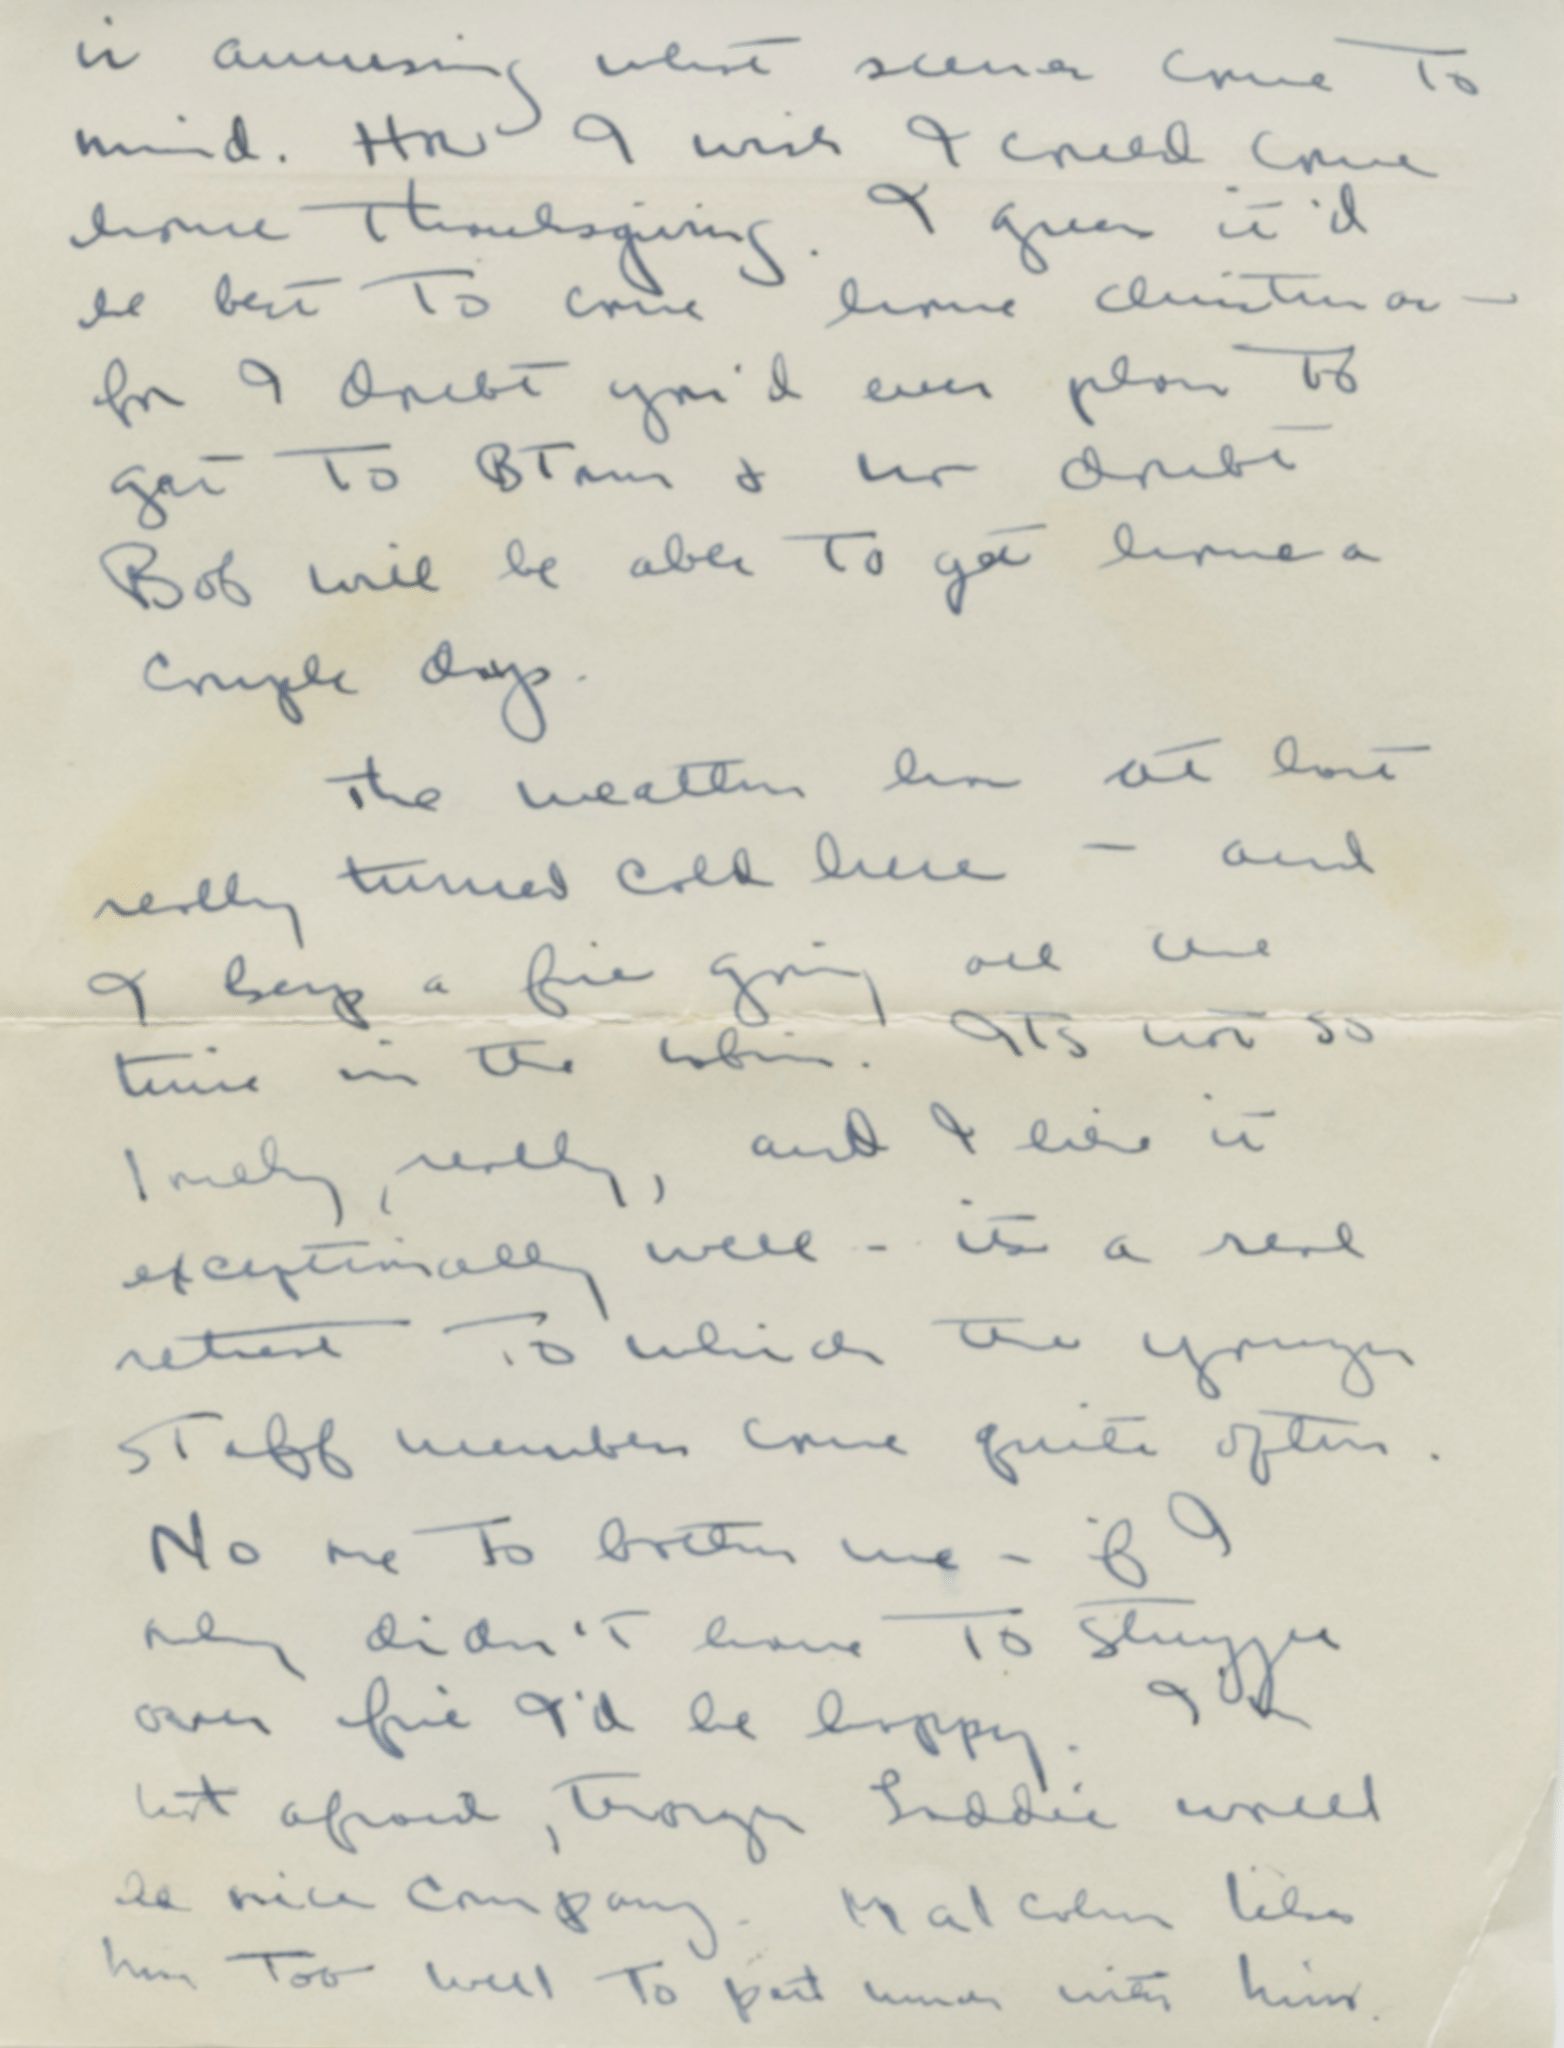 is amusing what scenes come to
mind. How I wish I could come
home Thanksgiving. I guess it'd
be best to come home Christmas –
for I doubt you'd ever plan to
get to BTown & no doubt
Bob will be able to get home a
couple days.
The weather has at last
really turned cold here – and
I keep a fire going all the
time in the cabin. Its not so
lonely, really, and I like it
exceptionally well – its a real
retreat to which the younger
staff members come quite often.
No one to bother me – if I
only didn't have to struggle
over fire I'd be happy. I'm
not afraid, though Laddie would
be nice company. Malcolm likes
him too well to part with him.